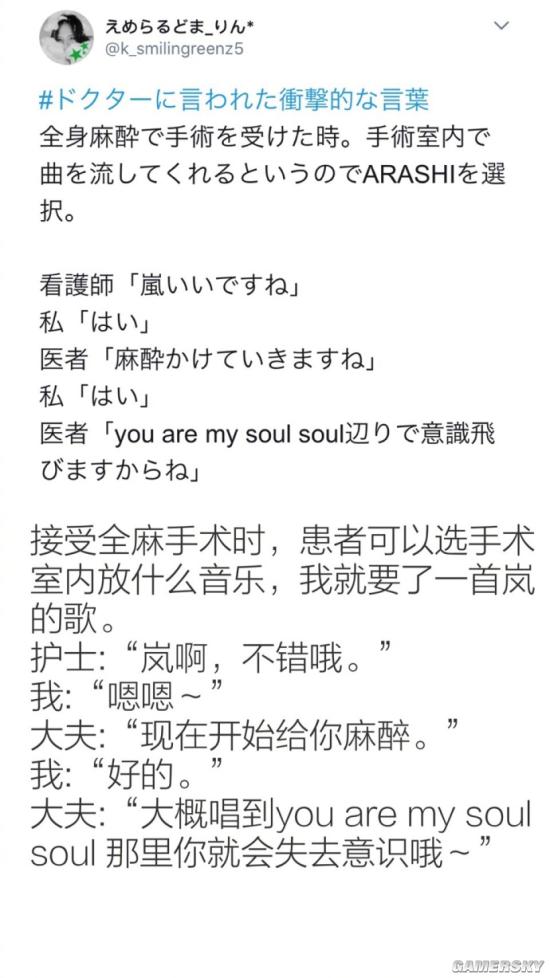 えめらるどま_りん*
@k_smilingreenz5
#ドクターに言われた衝撃的な言葉
全身麻酔で手術を受けた時。手術室内で
曲を流してくれるというのでARASHIを選
択。
看護師「嵐いいですね」
私「はい」
医者「麻酔かけていきますね」
私「はい」
医者「you are my soul soul辺りで意識飛
びますからね」
接受全麻手术时，患者可以选手术
室内放什么音乐，我就要了一首岚
的歌。
护士:“岚啊，不错哦。”
我:“嗯嗯～”
大夫:“现在开始给你麻醉。”
我:“好的。”
大夫:“大概唱到you are my soul
soul 那里你就会失去意识哦～”
GAMERSKY